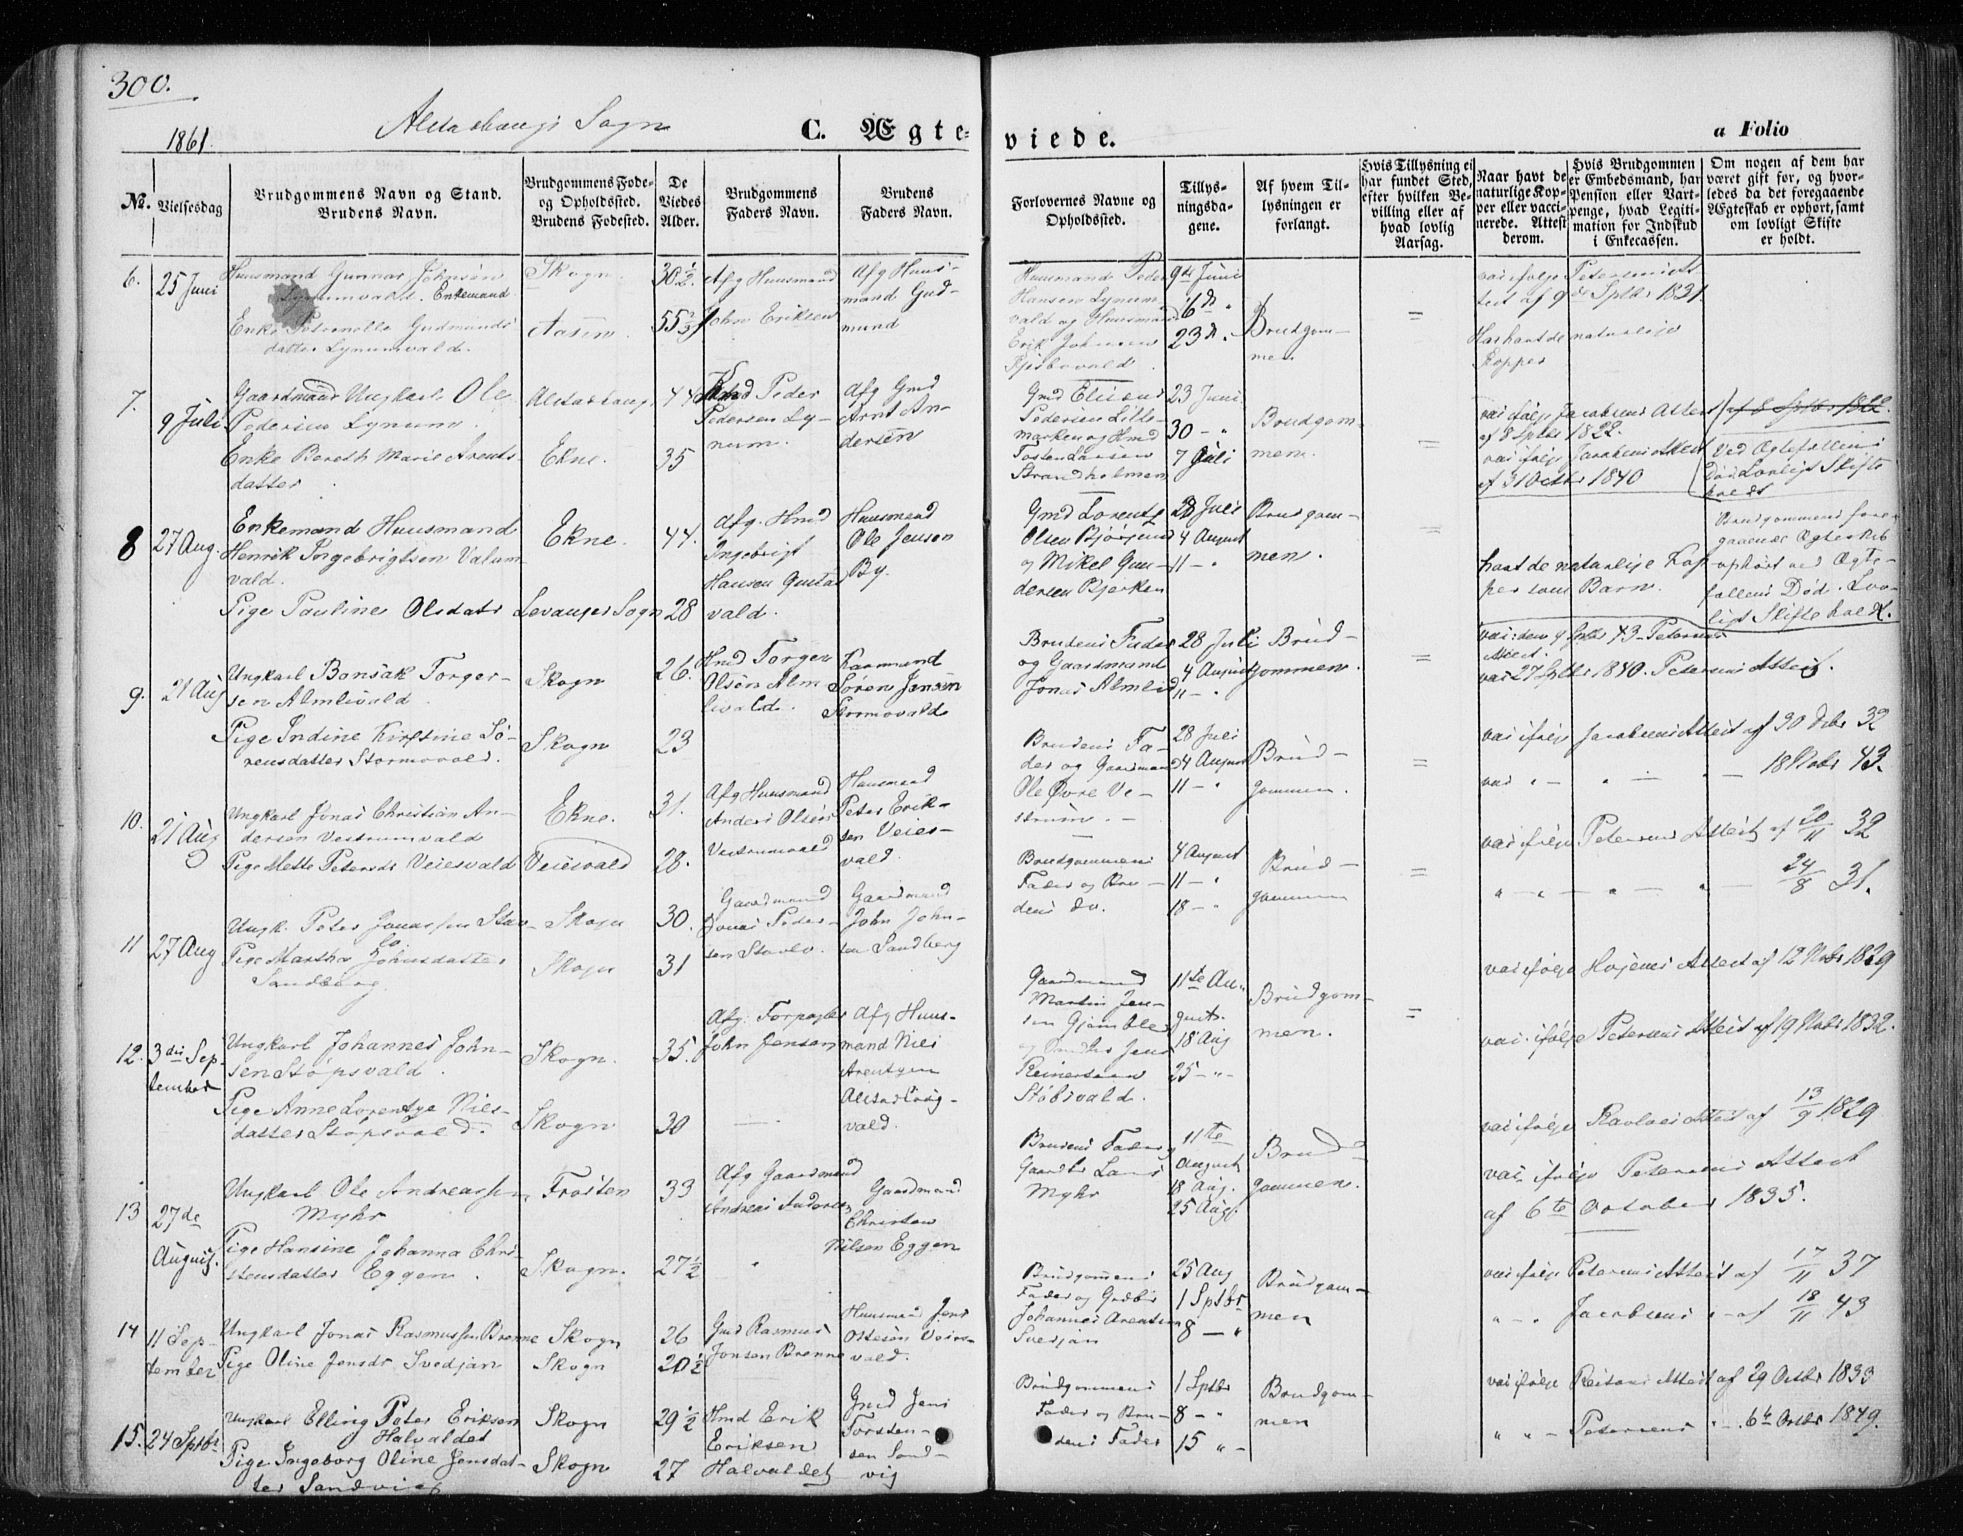 300.
Alstadhaugs Sogn
1861.
C. Ægte-
viede.
a Folio
No.
Vielsesdag
Brudgommens Navn og Stand.
Brudens Navn.
Brudgommens Føde-
og Opholdssted.
Brudens Fødested.
De
Viedes
Alder.
Brudgommens
Faders Navn.
Brudens
Faders Navn.
Forlovernes Navne og
Opholdssted.
Tillys-
ningsda-
gene.
Af hvem Til-
lysningen er
forlangt.
Hvis Tillysning ei
har fundet Sted,
efter hvilken Be-
villing eller af
hvad lovlig
Aarsag.
Naar havt de
naturlige Kop-
per eller vacci-
nerede. Attest
derom.
Hvis Brudgommen
er Embedsmand, har
Pension eller Vart-
penge, hvad Legiti-
mation for Indskud
i Enkecassen.
Om nogen af dem har
været gift før, og hvor-
ledes da det foregaaende
Ægteskab er ophørt, samt
om lovligt Skifte
er holdt.
6.
25 Juni
Huusmand Gunnar Johnsen
Lynumvald. Enkemand
Enke Petronelle Gudmunds-
datter Lynumvald.
Skogn.
Aasen
30 1/2.
55 1/2
Afg Huusmand
John Eriksen
Afg Huus-
mand Gud-
mund
Huusmand Peder
Hansen Lynum
vald og Huusmand
Erik Johnsen
9de Juni
16de "
23de "
Brudgom-
men
=
var ifølge Petersens At-
test af 9de Sptbr 1831
Har havt de naturlige
Kopper
7.
9 Juli
Gaardmand Ungkarl Ole
Pedersen Lynum.
Enke Bereth Marie Arents-
datter
Alstadhaug
Ekne.
44
35
Peder
Pedersen Ly-
num.
Afg Gmd
Arnt An-
dersen
Gmd Elius
Pedersen Lille-
marken og Hmd
Tosten Larsen
Strandholmen
23 Juni
30 - "
7 Juli
Brudgom-
men.
=
var ifølge Jacobsens Attest
af 8 Sptbr 1822.
var ifølge Jacobsens Attest
af 31 Octbr 1840
af 8 Sptbr 1822.
Ved Ægtefællens
Død Lovligt Skifte
holdt
8
27 Aug.
Enkemand Huusmand
Henrik Ingebrigtsen Valum
vald.
Pige Pauline Olsdatr
Ekne.
Levanger Sogn
44.
28
Afg. Hmd
Ingebrigt
Hansen Gustad
vald.
Huusmand
Ole Jensen
By.
Gmd Lorents
Olsen Bjørgum
og Mikel Gun-
dersen Bjerken
28 Juli
4 August
11 - "
Brudgom-
men.
=
havt de naturlige Kop-
per som Barn.
Brudgommens fore-
gaaende Ægteskab
ophørt ved Ægte-
fællens Død. Lov-
ligt Skifte holdt.
9.
21 Aug
Ungkarl Bonsak Torger-
sen Almlivald
Pige Indine Kirstine Sø-
rensdatter Stormovald.
Skogn
Skogn
26.
23
Hmd Torger
Olsen Alm-
livald.
Søren Jensen
Stormovald
Brudens Fader
og Gaardmand
Jonas Almlid
28 Juli
4 August
11 - "
Brud-
gommen.
=
var: den 9 Sptbr 43 - Petersens
Attest.
var 27 Sptbr 1840. Petersens Attest.
10.
21 Aug
Ungkarl Jonas Christian An-
dersen Vestrumvald
Pige Mette Petersdr Veiesvald
Ekne.
Veiesvald
31.
28.
Afg Huusmand
Anders Olsen
Vestrumvald
Huusmand
Peter Erik-
sen Veies-
vald.
Brudens Fa-
der og Gaardmand
Ole Øvre Ve-
strum. -
28 Juli
4 August
11 - "
Brud-
gommen.
=
var ifølge Jacobsens Attest af 30 Dcbr 32
var " - " - " - 18 Novbr 43.
11
27 Aug
Ungk. Peter Jonassen Stav-
lo.
Pige Martha Johnsdatter
Sandberg
Skogn
Skogn
30.
31
Gaardmand
Jonas Peder-
sen Stavlo.
Gaardmand
John John-
sen Sandberg
Brudgommens
Fader og Bru-
dens do.
4 August
11 - "
18 - "
Brud-
gommen
=
var ifølge Petersens Attest af 20/11 32
" - " - " - " - 24/8 31.
12.
3die Sep-
tember
Ungkarl Johannes John-
sen Støpsvald.
Pige Anne Lorentse Niels-
datter Støpsvald.
Skogn.
Skogn
35.
30
Afg. Forpagter
John Jensen
Afg Huus-
mand Niels
Arentsen
Alstadhaug-
vald.
Gaardmand
Martin Jen-
sen Gjømble
Reinertsen
Støbsvald.
11te Au-
gust.
18 Aug
25 - "-
Brudgom-
men.
=
var ifølge Højems Attest af 12 Novbr 1829
var ifølge Petersens Attest af 19 Novbr 1832.
13
27de
August.
Ungkarl Ole Andreassen
Myhr
Pige Hansine Johanna Chri-
stensdatter Eggen.
Frosten
Skogn.
33
27 1/2
Afg Gaardmand
Andreas Andersen
Gaardmand
Christen
Nilsen Eggen
Brudens Fader og
Gaardbr Lars
Myhr
11te
August
18 Aug.
25 Aug.
Brud-
gommen.
var ifølge Attest af 13/9 1829
var ifølge Petersens Attest
af 6te October 1835.
14
11 Sep-
tember
Ungkarl Jonas Rasmussen Brenne
Pige Oline Jensdr Svedjan
Skogn
Skogn
26
20 1/2
Gmd Rasmus
Jonsen Brenne
Huusmand Jens
Ottesen Veies-
vald.
Brudgommens
Fader og Grdbr
Johannes Arentsen
Svedjan
25 Aug
1 Sptbr
8 - "
Brudgom-
men
var ifølge Petersens Attest af 17/11 37
" - " Jacobsens " - af 18/11 43
15.
24 Sptbr
Ungkarl Elling Peter Eriksen
Halvaldet
Pige Ingeborg Oline Jensdat-
ter Sandvig
Skogn
Skogn
29 1/2
27
Hmd Erik
Eriksen
Halvaldet
Gmd Jens
Torsten-
sen Sand-
vig
Brudgommens
Fader og Bru-
dens Fader
1 Sptbr
8 - "
15 " -
Brudgom-
men
var ifølge Reitans Attest af 29 Octbr 1833
" " - Petersens " - 6te Octbr 1849.